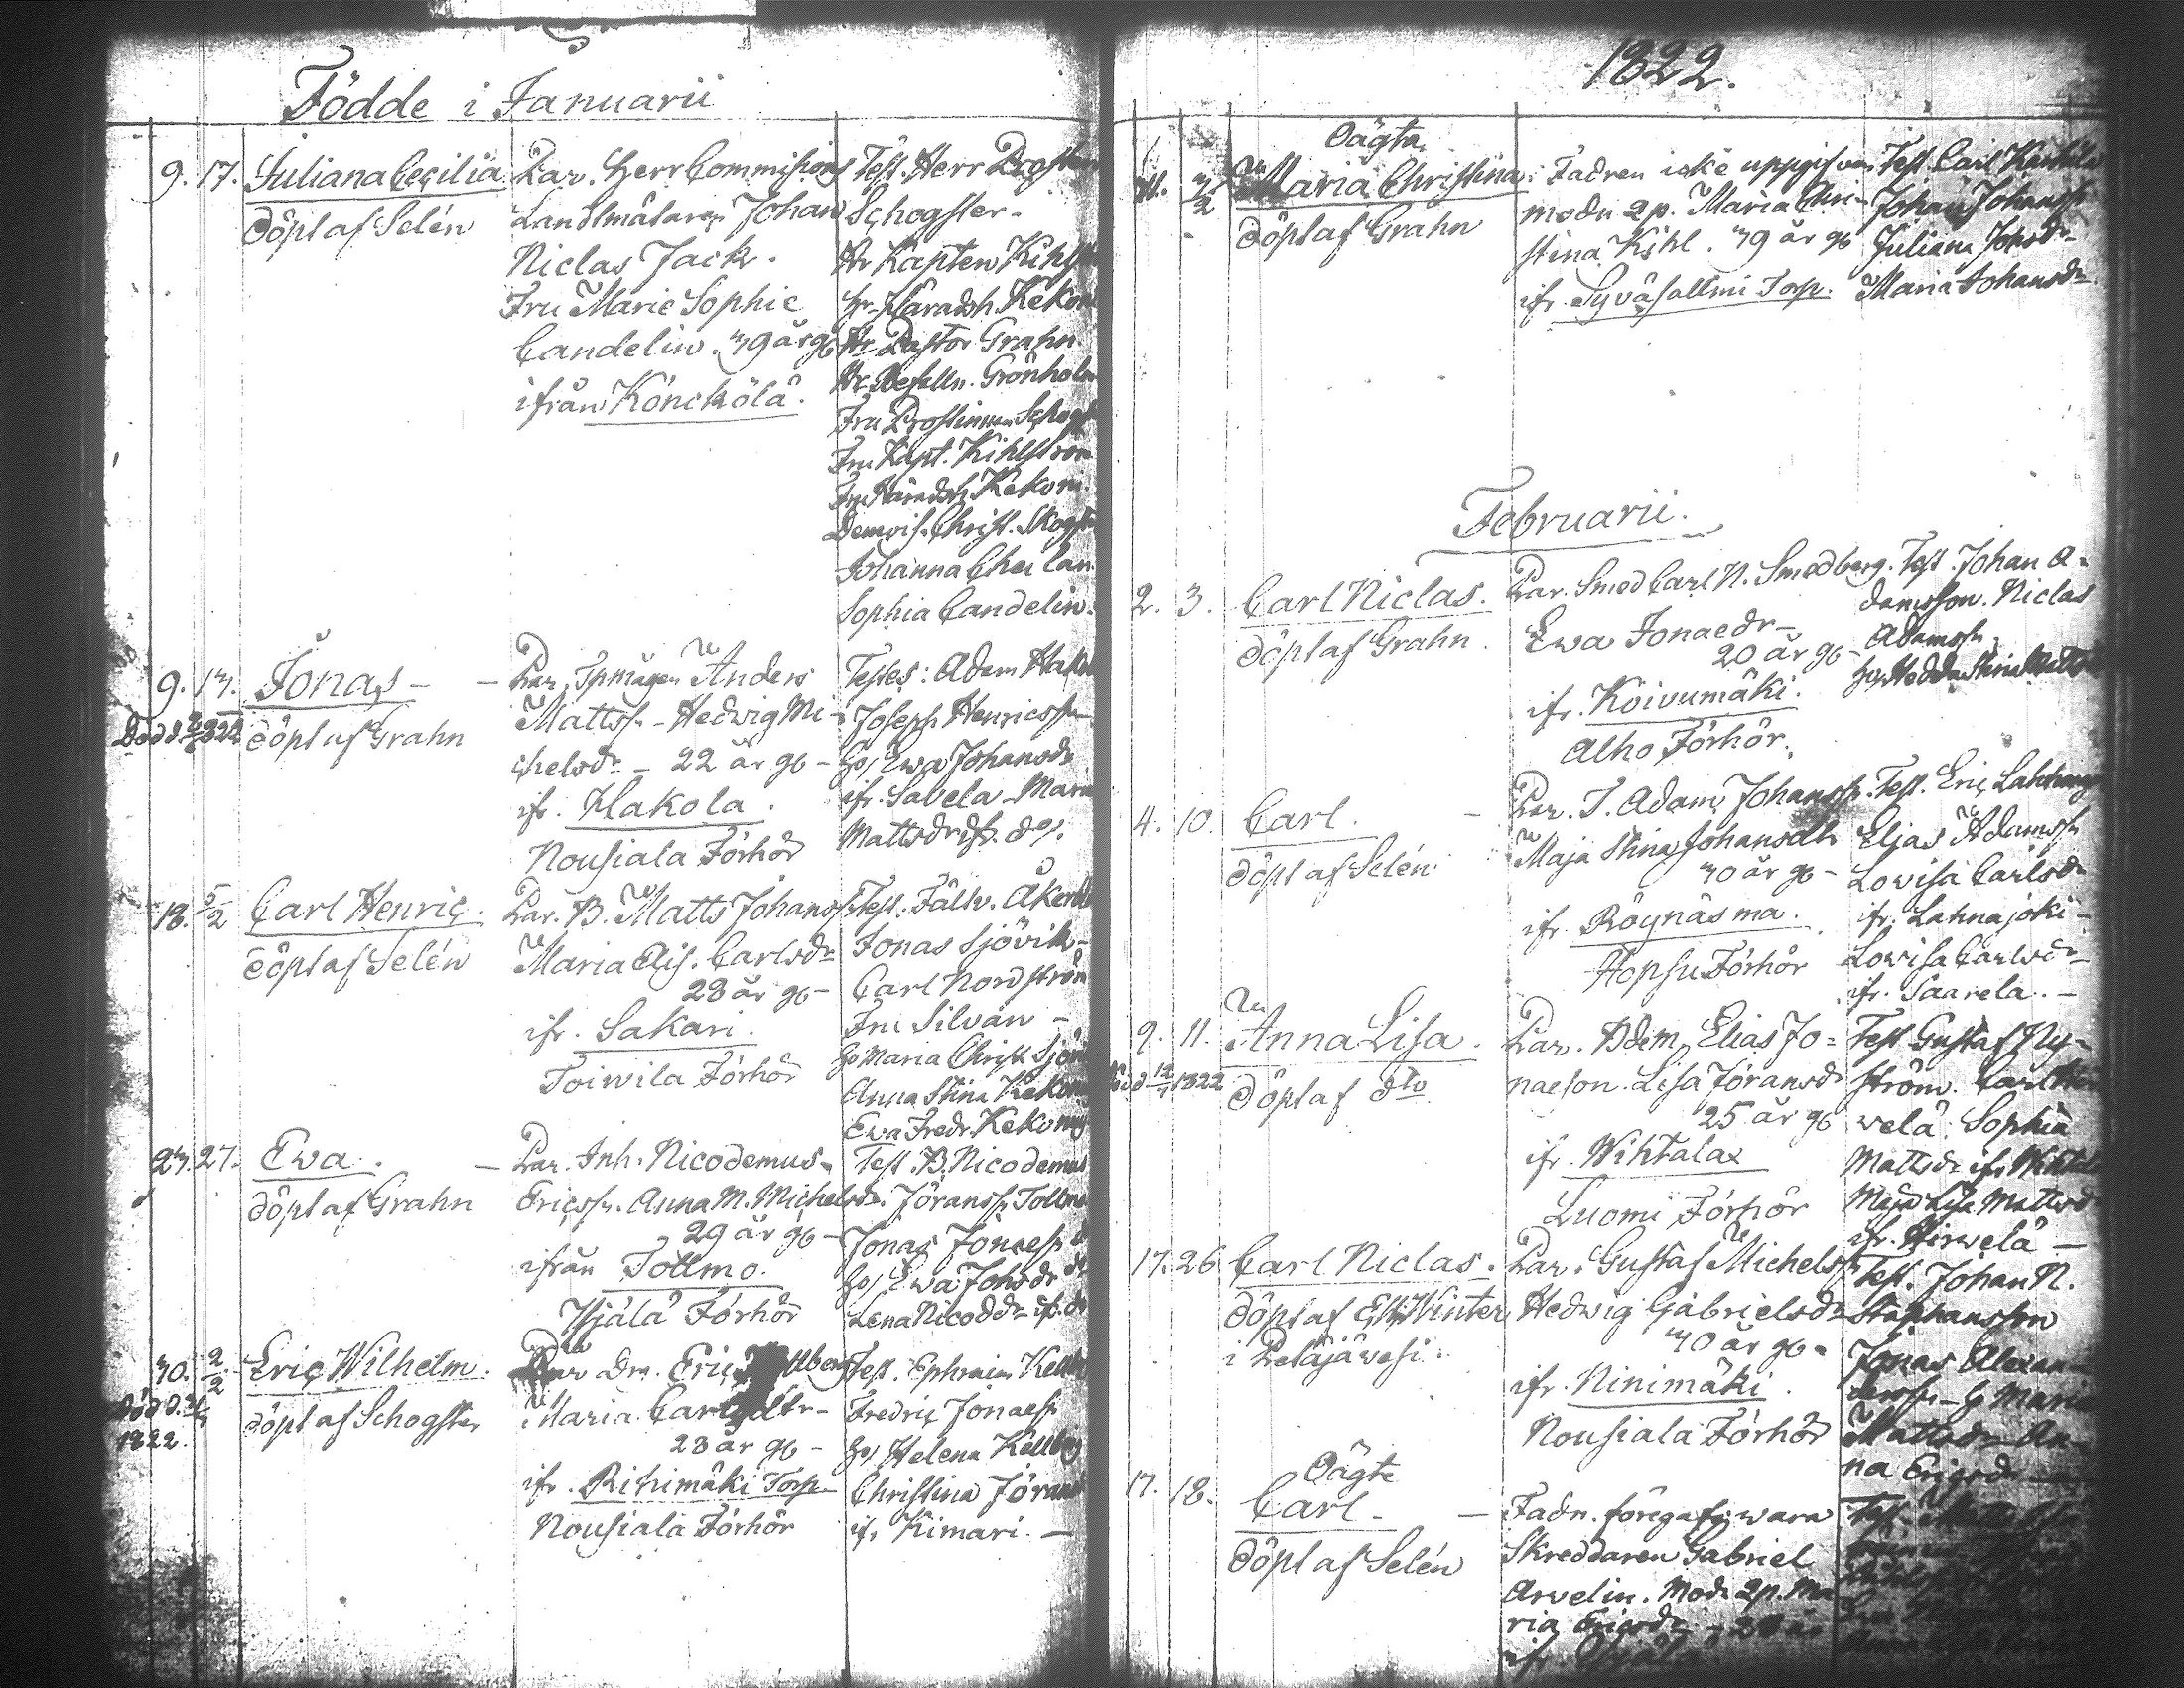 Födde i Januarii
9. 17. Juliana Cecilia
döpt af Selén
Par. Herr Commissions
Landtmätaren Johan
Niclas Jack.
Fru Marie Sophie
Candelin. 39 år gl
ifrån Könckölä.
Test. Herr Prosten
Schogster.
Hr Kapten Kihlst
Hr Häradsh. Kekoni
Hr Pastor Grahn
Hr Befalln. Grönholm
Fru Prostinnan Schogst
Fru Kapt. Kihlström
Fru Häradsh. Kekoni.
Demois. Christ. Skogst
Johanna
Sophia Candelin.
9. 13. Jonas
Död d. 1822
döpt af Grahn
Par. Spmågen Anders
Mattss. Hedwig Mi-
chelsdr 22 år gl
ifr. Hakola.
Nousiala Förhör
Testes: Adam Hakol
Joseph Henricss
Hos Ewa Johansdr
ifr. Savela Maria
Mattsdr ifr. do.
18. 5/2 Carl Henric.
döpt af Selén
Par. B. Matts Johanss
Maria Elis. Carlsdr
28 år gl
ifr. Sakari.
Toiwila Förhör
Test: Fältv. Åkerbl
Jonas Sjövik
Carl Nordström
Fru Silvan
Ho Maria Christ. Sjövi
Anna Stina Kekoni
Ewa Fredr. Kekoni
23. 27. Ewa.
döpt af Grahn
Par. Inh. Nicodemus
Ericss. Anna M. Michelsdr.
29 år gl
ifrån Töllmo.
Hjälä Förhör
Test. B. Nicodemus
Jöranss Tollmo
Jonas Jonaess
Hos Ewa Johsdr
Lena Nicoddr ifr. do
30. 2/2 Eric Wilhelm.
Död d.
1822.
döpt af Schogster
Par Dr. Eric llberg
Maria Carlsdtr
28 år gl
ifr. Rihimäki Torp
Nousiala Förhör
Test. Ephraim Kellb
Fredric Jonaess
Hos Helena Kellberg
Christina Jörans
ifr Kimari.
1822.
Oägta
31. 3/2 Maria Christina
döpt af Grahn
Fadren icke uppgifven
modn 2 p. Maria Chri-
stina Kihl. 39 år gl
ifr. Syväsallmi Torp.
Test. Carl Karhila
Johan Johanss
Juliana Johsdr
Maria Johansdr
Februarii.
2. 3. Carl Niclas.
döpt af Grahn.
Par. Smed Carl N. Smedberg.
Ewa Jonaedr
20 år gl
ifr. Koivumäki.
Alho Förhör.
Test. Johan A-
damsson. Niclas
Adamss.
Ho Hedda Stina Matts
4. 10. Carl.
döpt af Selén
Par. T. Adam Johanss.
Maja Stina Johansdtr
30 år gl
ifr. Röynäsma.
Hopsu Förhör
Test. Eric Lahnajo
Elias Adamss
Lovisa Carlsdr
ifr. Lahnajoki
Lovisa Carlsdr
ifr. Saarela.
9. 11. Anna Lisa.
Död 12/7 1822
döpt af dto
Par. Bdem Elias Jo-
naeson. Lisa Jöransdr
25 år gl
ifr. Wihtalax
Luomi Förhör
Test Gustaf Ny-
ström. Carl Hir
velä. Sophia
Mattsdr ifr Wihtal
Maja Lisa Mattsd
ifr. Hirwelä
17. 26 Carl Niclas.
döpt af E.W. Winter
i Petäjävesi
Par. Gustaf Michelss
Hedwig Gabrielsdr
30 år gl
ifr. Ninimäki.
Nousiala Förhör
Test. Johan N.
Staphansson
Jonas Alexan-
derss Maria
Mattsdr An-
na Ericsdr
Oägte
17. 18. Carl.
döpt af Selén
Fadn. föregafs wara
Skreddaren Gabriel
Arvelin. Modr 2p. Ma
ria Ericsdr
Test.